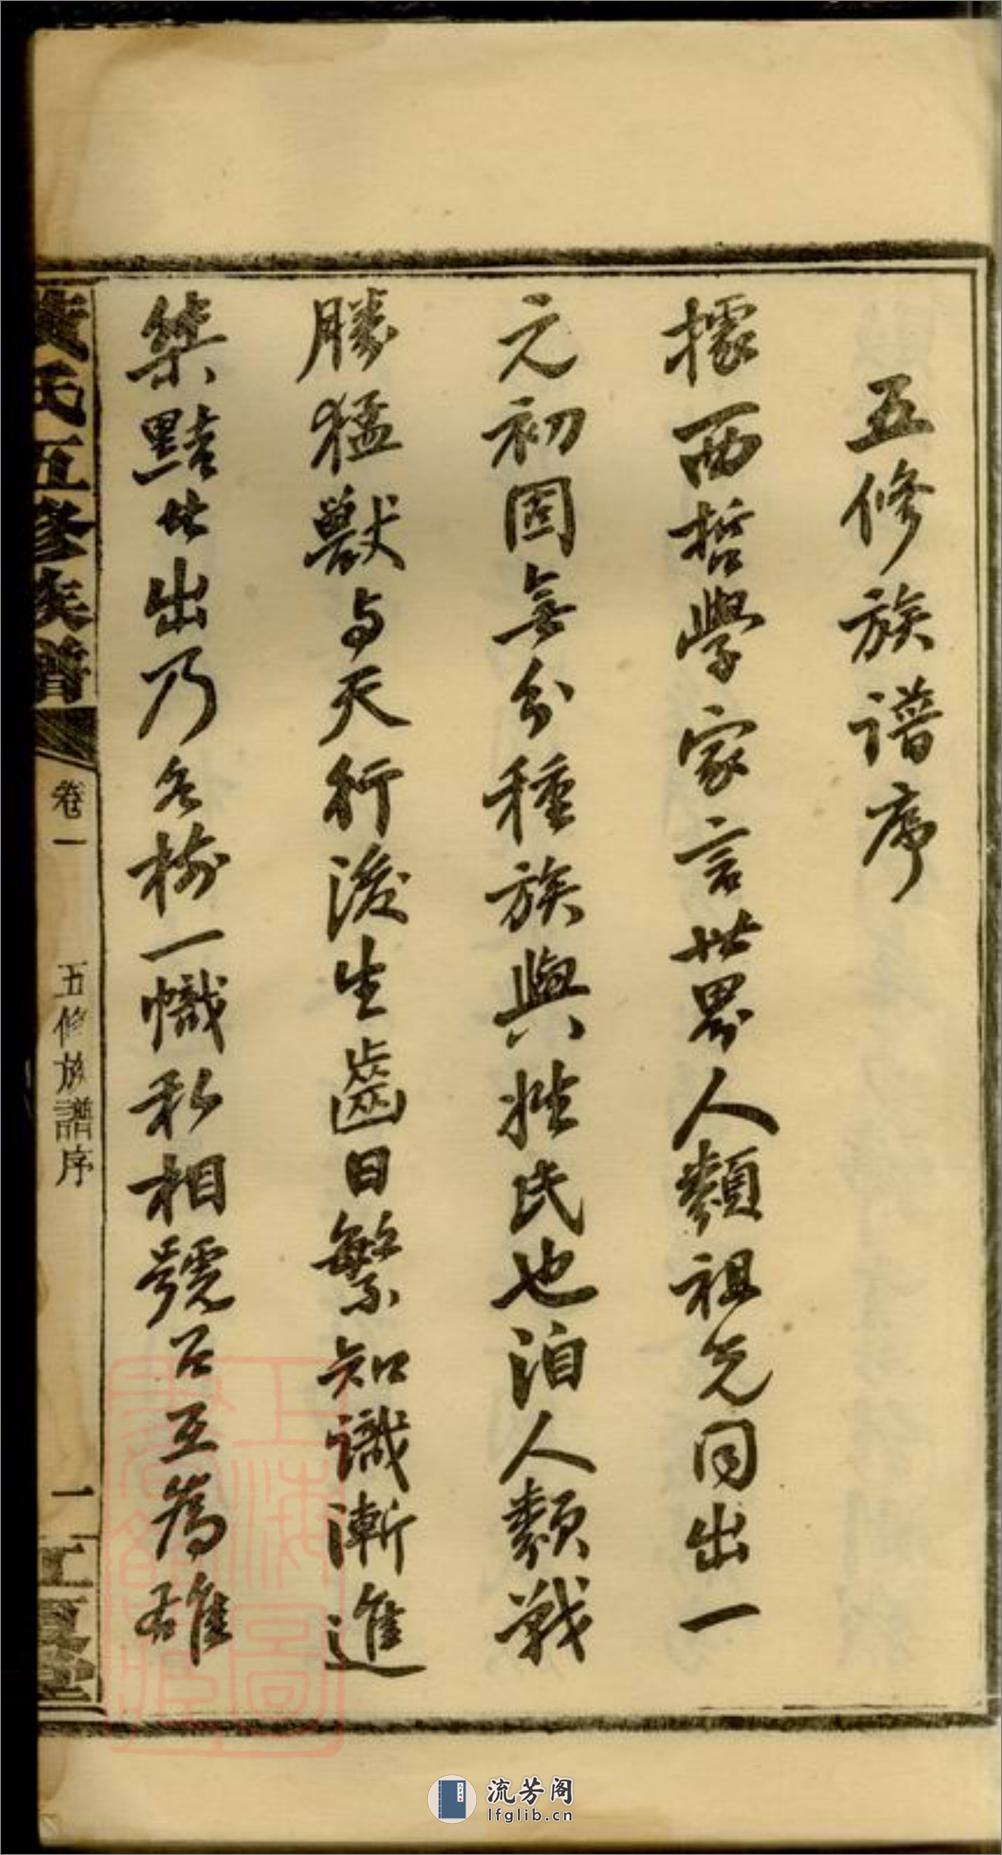 五修族譜序
據西哲學家言世界人類祖先同出一
元初固無分種族與姓氏也洎人類戰
勝猛獸与天行後生齒日繁知識漸進
桀黠者出乃各樹一幟私相號召互為雄
黃氏五修族譜
卷一
五修族譜序
一
江夏堂
上海圖書館藏
流芳阁
lfglib.cn